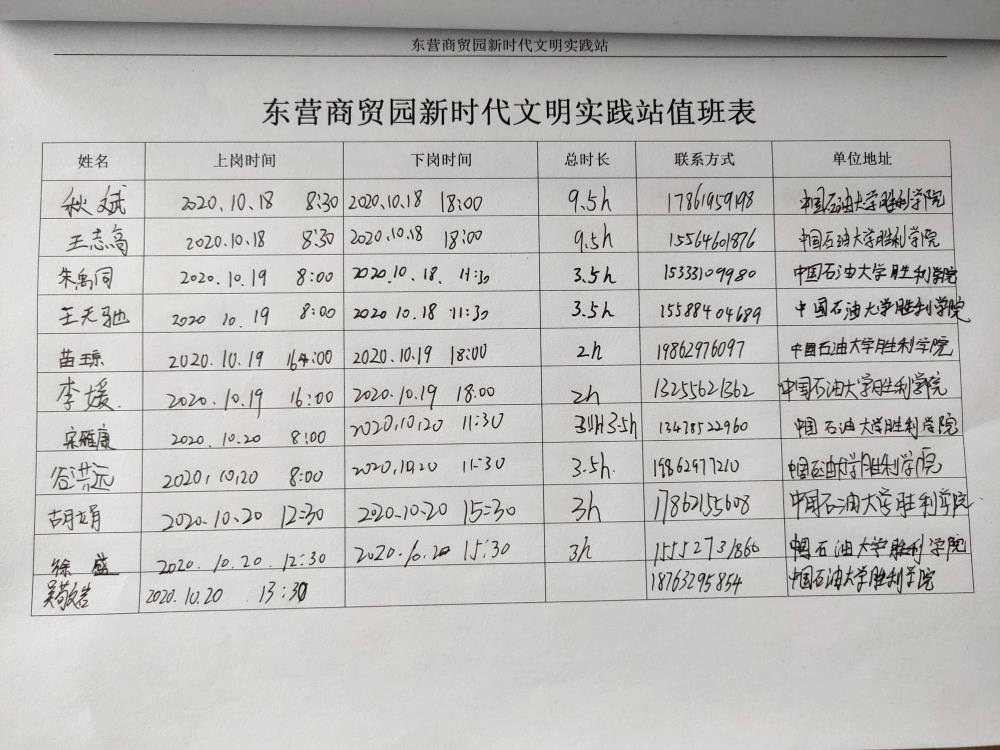 东营商贸园新时代文明实践站
东营商贸园新时代文明实践站值班表
姓名 上岗时间 下岗时间 总时长 联系方式 单位地址
秋文斌 2020.10.18 8:30 2020.10.18 18:00 9.5h 17861959198 中国石油大学胜利学院
王志高 2020.10.18 8:30 2020.10.18 18:00 9.5h 15564601876 中国石油大学胜利学院
朱禹同 2020.10.19 8:00 2020.10.18. 11:30 3.5h 15333109980 中国石油大学胜利学院
王天驰 2020 10.19 8:00 2020 10.18 11:30 3.5h 15588404689 中国石油大学胜利学院
苗琼 2020.10.19 16:00 2020.10.19 18:00 2h 19862976097 中国石油大学胜利学院
李媛 2020.10.19 16:00 2020.10.19 18:00 2h 13255621362 中国石油大学胜利学院
宋雁康 2020.10.20 8:00 2020.10.20 11:30 3.5h 13478522960 中国石油大学胜利学院
谷洪远 2020.10.20 8:00 2020.10.20 11:30 3.5h 19862977210 中国石油大学胜利学院
胡娟 2020.10.20 12:30 2020.10.20 15:30 3h 17862155608 中国石油大学胜利学院
徐盛 2020.10.20. 12:30 2020.10.20 15:30 3h 15552731860 中国石油大学胜利学院
吴敬 2020.10.20 13:30 18763295854 中国石油大学胜利学院